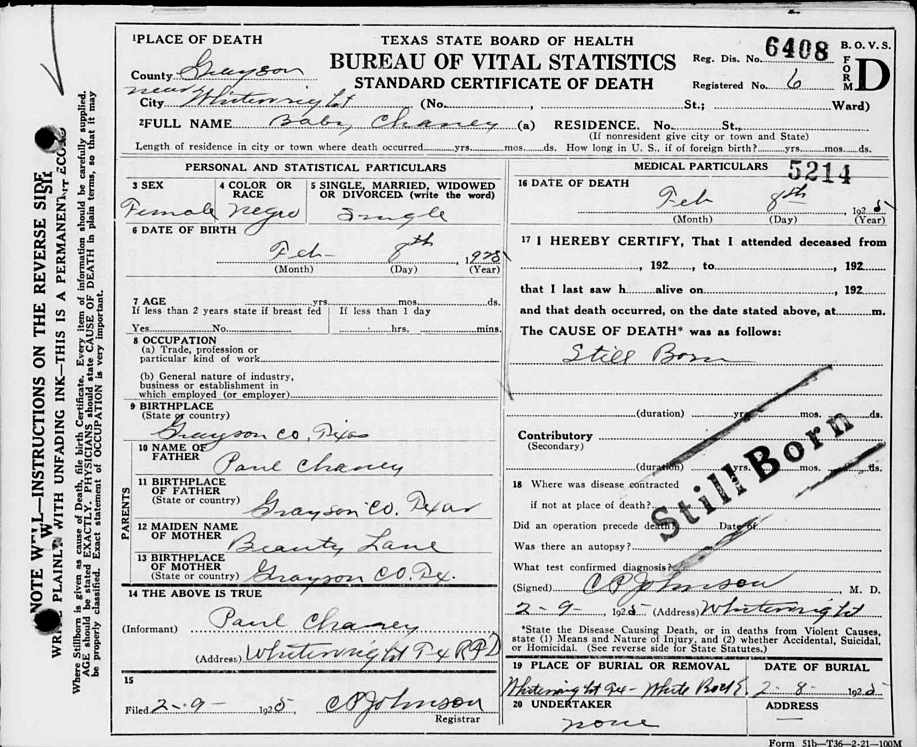 1PLACE OF DEATH
TEXAS STATE BOARD OF HEALTH
BUREAU OF VITAL STATISTICS
STANDARD CERTIFICATE OF DEATH
Reg. Dis. No. 6408
Registered No. 6
B. O. V. S.
FORM D
County Grayson
near
City Whitewright (No. , St.; Ward)
2FULL NAME Baby Chaney (a) RESIDENCE. No. St.,
(If nonresident give city or town and State)
Length of residence in city or town where death occurred yrs. mos. ds. How long in U. S., if of foreign birth? yrs. mos. ds.
PERSONAL AND STATISTICAL PARTICULARS
3 SEX
Female
4 COLOR OR RACE
Negro
5 SINGLE, MARRIED, WIDOWED
OR DIVORCED (write the word)
Single
6 DATE OF BIRTH
Feb 8th , 1925
(Month) (Day) (Year)
7 AGE yrs. mos. ds.
If less than 2 years state if breast fed
If less than 1 day
Yes No. hrs. mins.
8 OCCUPATION
(a) Trade, profession or
particular kind of work
(b) General nature of industry,
business or establishment in
which employed (or employer)
9 BIRTHPLACE
(State or country)
Grayson Co, Texas
PARENTS
10 NAME OF
FATHER
Paul Chaney
11 BIRTHPLACE
OF FATHER
(State or country) Grayson Co. Texas
12 MAIDEN NAME
OF MOTHER
Beauty Lane
13 BIRTHPLACE
OF MOTHER
(State or country) Grayson Co. Tx.
14 THE ABOVE IS TRUE
(Informant) Paul Chaney
(Address) Whitewright Tx RFD
15
Filed 2-9- 1925, CP Johnson
Registrar
MEDICAL PARTICULARS
5214
16 DATE OF DEATH
Feb 8th 1925
(Month) (Day) (Year)
17 I HEREBY CERTIFY, That I attended deceased from
, 192 , to , 192
that I last saw h alive on , 192
and that death occurred, on the date stated above, at m.
The CAUSE OF DEATH* was as follows:
Still Born
(duration) yrs. mos. ds.
Contributory
(Secondary)
(duration) yrs. mos. ds.
Still Born
18 Where was disease contracted
if not at place of death?
Did an operation precede death? Date of
Was there an autopsy?
What test confirmed diagnosis?
(Signed) CP Johnson , M. D.
2-9- , 1925 (Address) Whitewright
*State the Disease Causing Death, or in deaths from Violent Causes,
state (1) Means and Nature of Injury, and (2) whether Accidental, Suicidal,
or Homicidal. (See reverse side for State Statutes.)
19 PLACE OF BURIAL OR REMOVAL
Whitewright Tx - White Rock
DATE OF BURIAL
2-8- 1925
20 UNDERTAKER
none
ADDRESS
Form 51b—T36—2-21—100M
INSTRUCTIONS ON THE REVERSE SIDE
WITH UNFADING INK—THIS IS A PERMANENT
Where Stillborn is given as cause of Death, file birth Certificate. Every item of information should be carefully supplied.
AGE should be stated EXACTLY. PHYSICIANS should state CAUSE OF DEATH in plain terms, so that it may
be properly classified. Exact statement of OCCUPATION is very important.